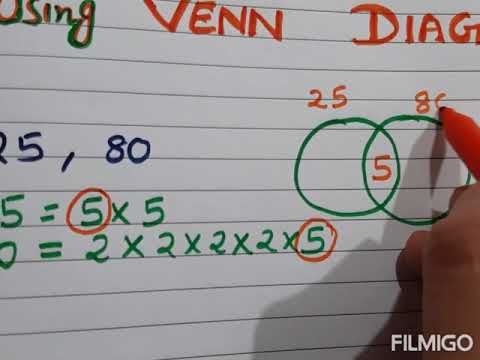 Using VENN DIAG
25 80
25, 80
5
5 = 5 × 5
0 = 2 × 2 × 2 × 2 × 5
FILMIGO